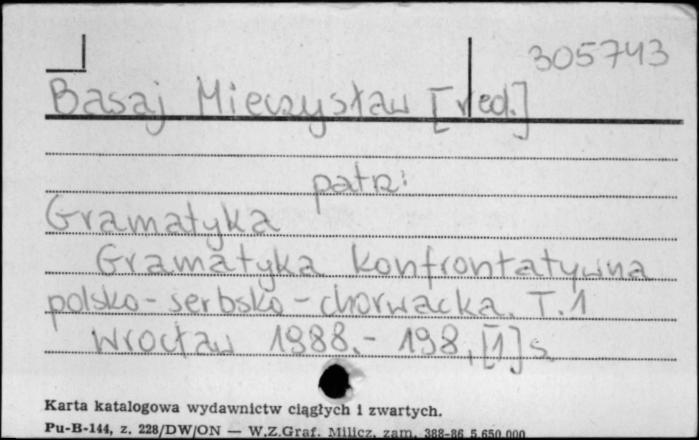 305743
Basaj Mieczysław [red.]
patrz:
Gramatyka
Gramatyka konfrontatywna
polsko-serbsko-chorwacka. T.1
Wrocław 1988.- 198,[1] s.
Karta katalogowa wydawnictw ciągłych i zwartych.
Pu-B-144, z. 228/DW/ON — W.Z.Graf. Milicz, zam. 388-86 5.650.000